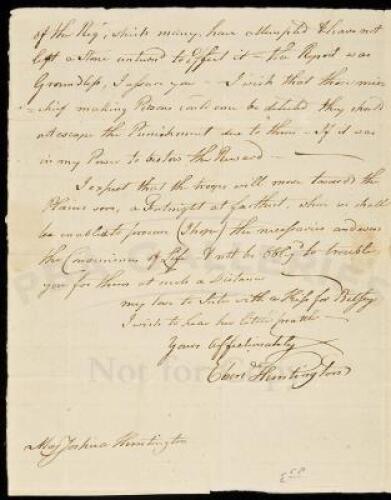 of the Regt, which many have attempted & have not
left a Stone unturned to Effect it – the Report was
Groundless, I assure you – I wish that those mis
chief making Persons could once be detected they should
not escape the Punishment due to them – If it was
in my Power to bestow the Reward –
I expect that the troops will move towards the
Plains soon, a Fortnight at farthest, when we shall
be enabled to procure (I hope) the necessaries and even
the Conveniences of Life & not be Oblig'd to trouble
you for them at such a Distance
my love to Sister with a Kiss for Betsey
I wish to hear her little prattle –
Yours Affectionately
Eben'r Huntington
Maj Joshua Huntington
Not for